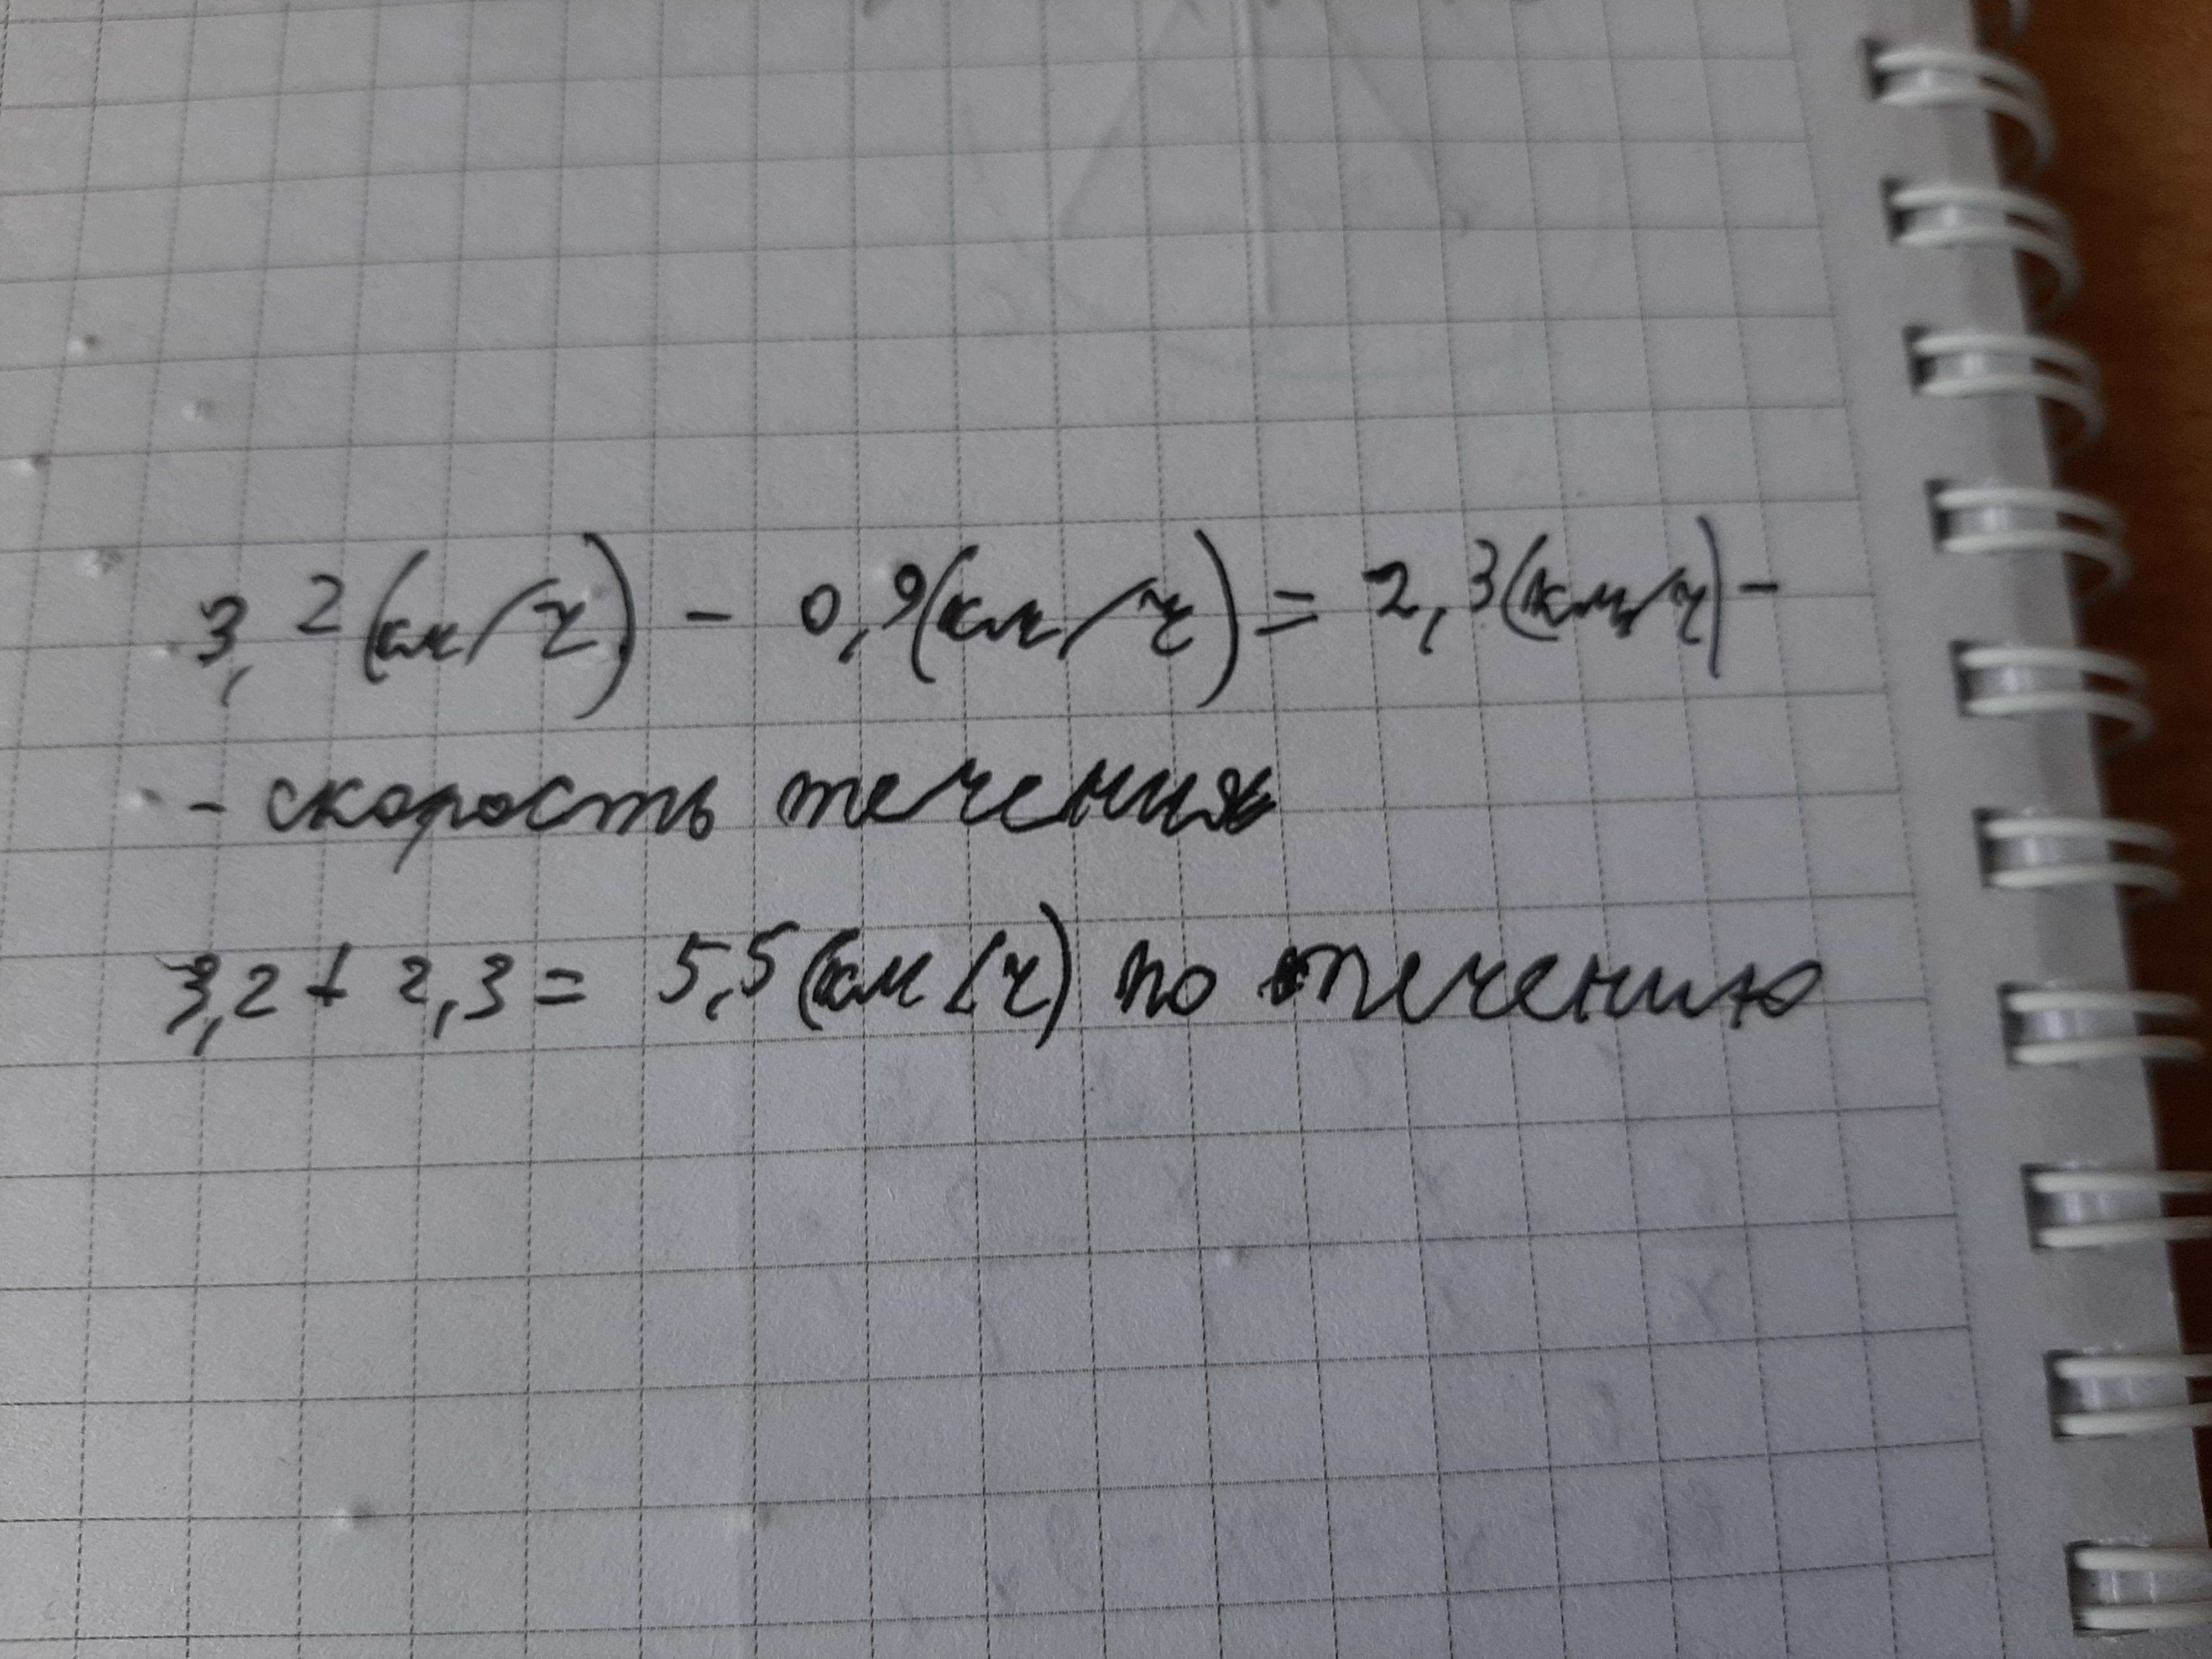 3,2(км/ч) - 0,9(км/ч) = 2,3(км/ч) -
- скорость течения
3,2 + 2,3 = 5,5(км/ч) по течению